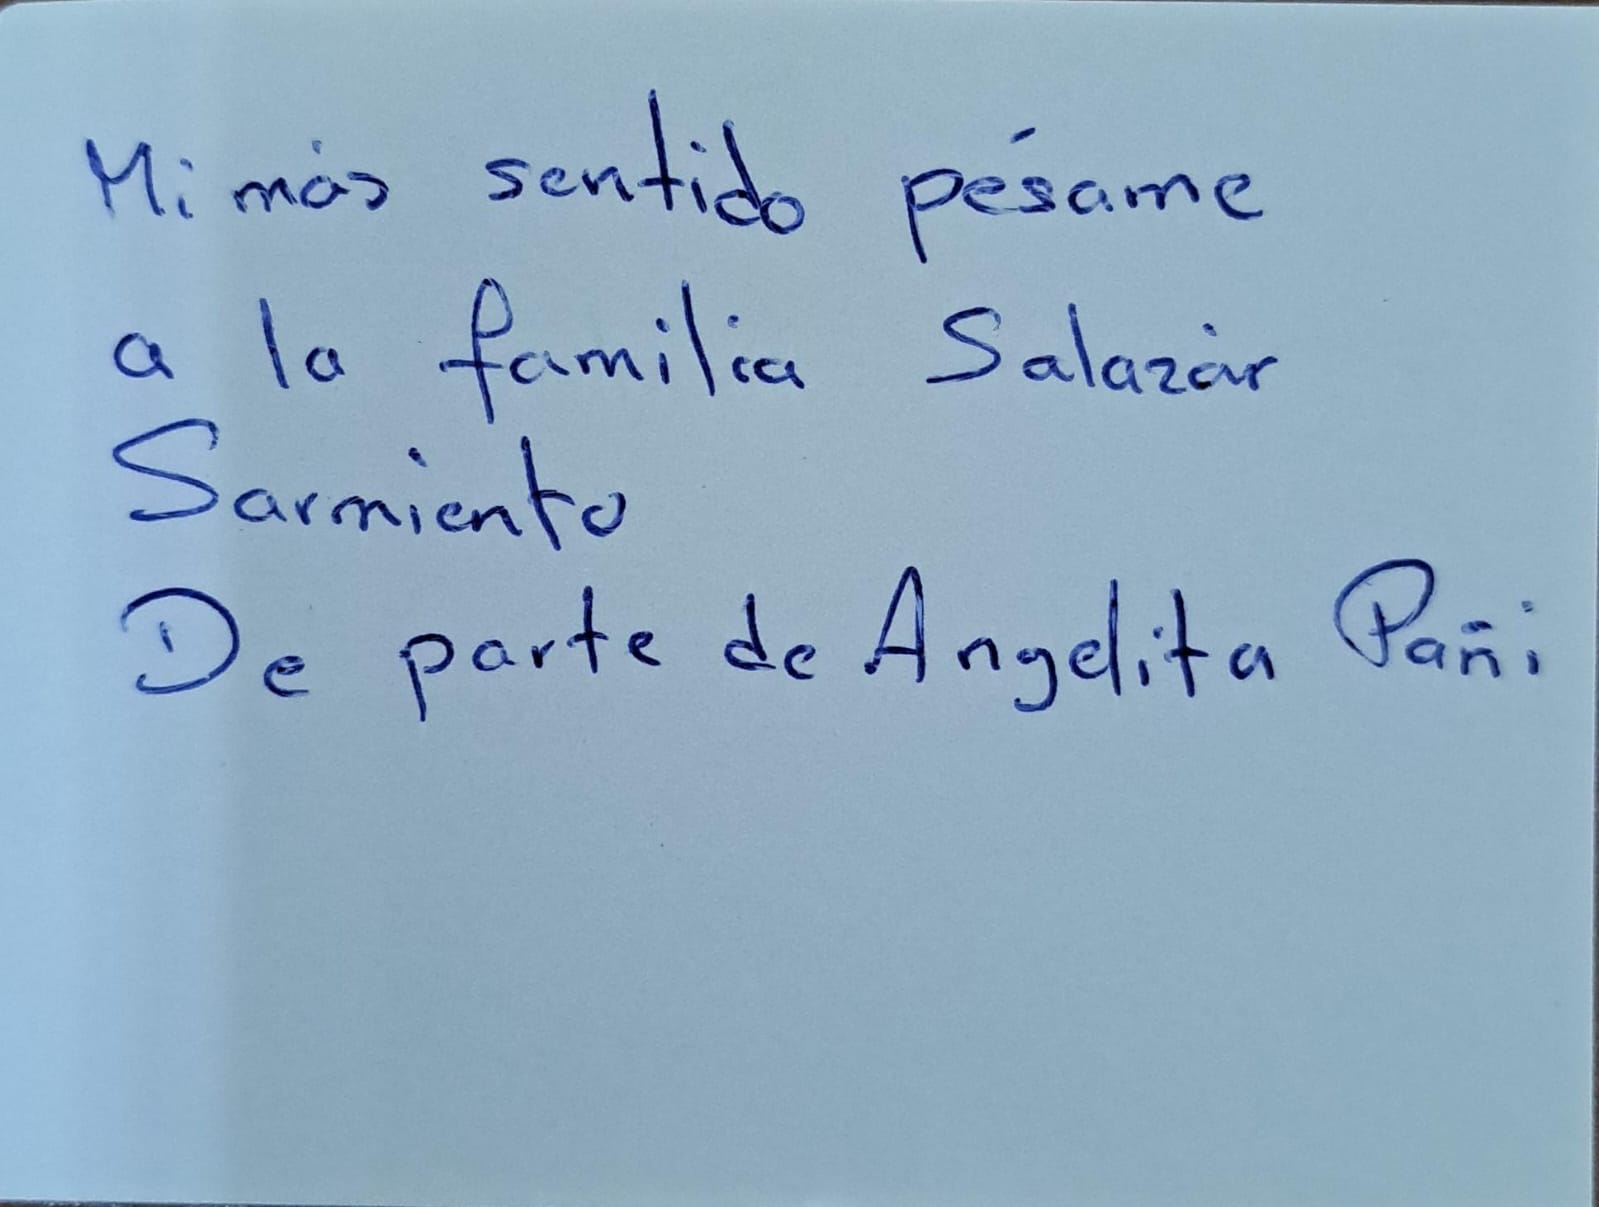 Mi más sentido pésame
a la familia Salazar
Sarmiento
De parte de Angelita Pañi